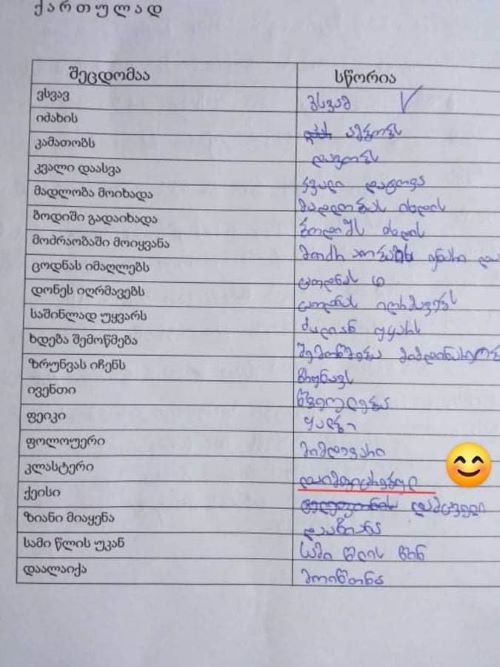 ქართულად
შეცდომაა სწორია
ვსვავ ვსვამ
იძახის ამბობს
კამათობს დავობს
კვალი დაასვა კვალი დატოვა
მადლობა მოიხადა მადლობას იხდის
ბოდიში გადაიხადა ბოდიშს იხდის
მოძრაობაში მოიყვანა
ცოდნას იმაღლებს ცოდნას
დონეს იღრმავებს ცოდნას იღრმავებს
საშინლად უყვარს ძალიან უყვარს
ხდება შემოწმება შემოწმება მიმდინარეობს
ზრუნვას იჩენს ზრუნავს
ივენთი წვეულება
ფეიკი ყალბი
ფოლოუერი მიმდევარი
კლასტერი
ქეისი დამცველი
ზიანი მიაყენა დააზიანა
სამი წლის უკან სამი წლის წინ
დაალაიქა მოიწონა